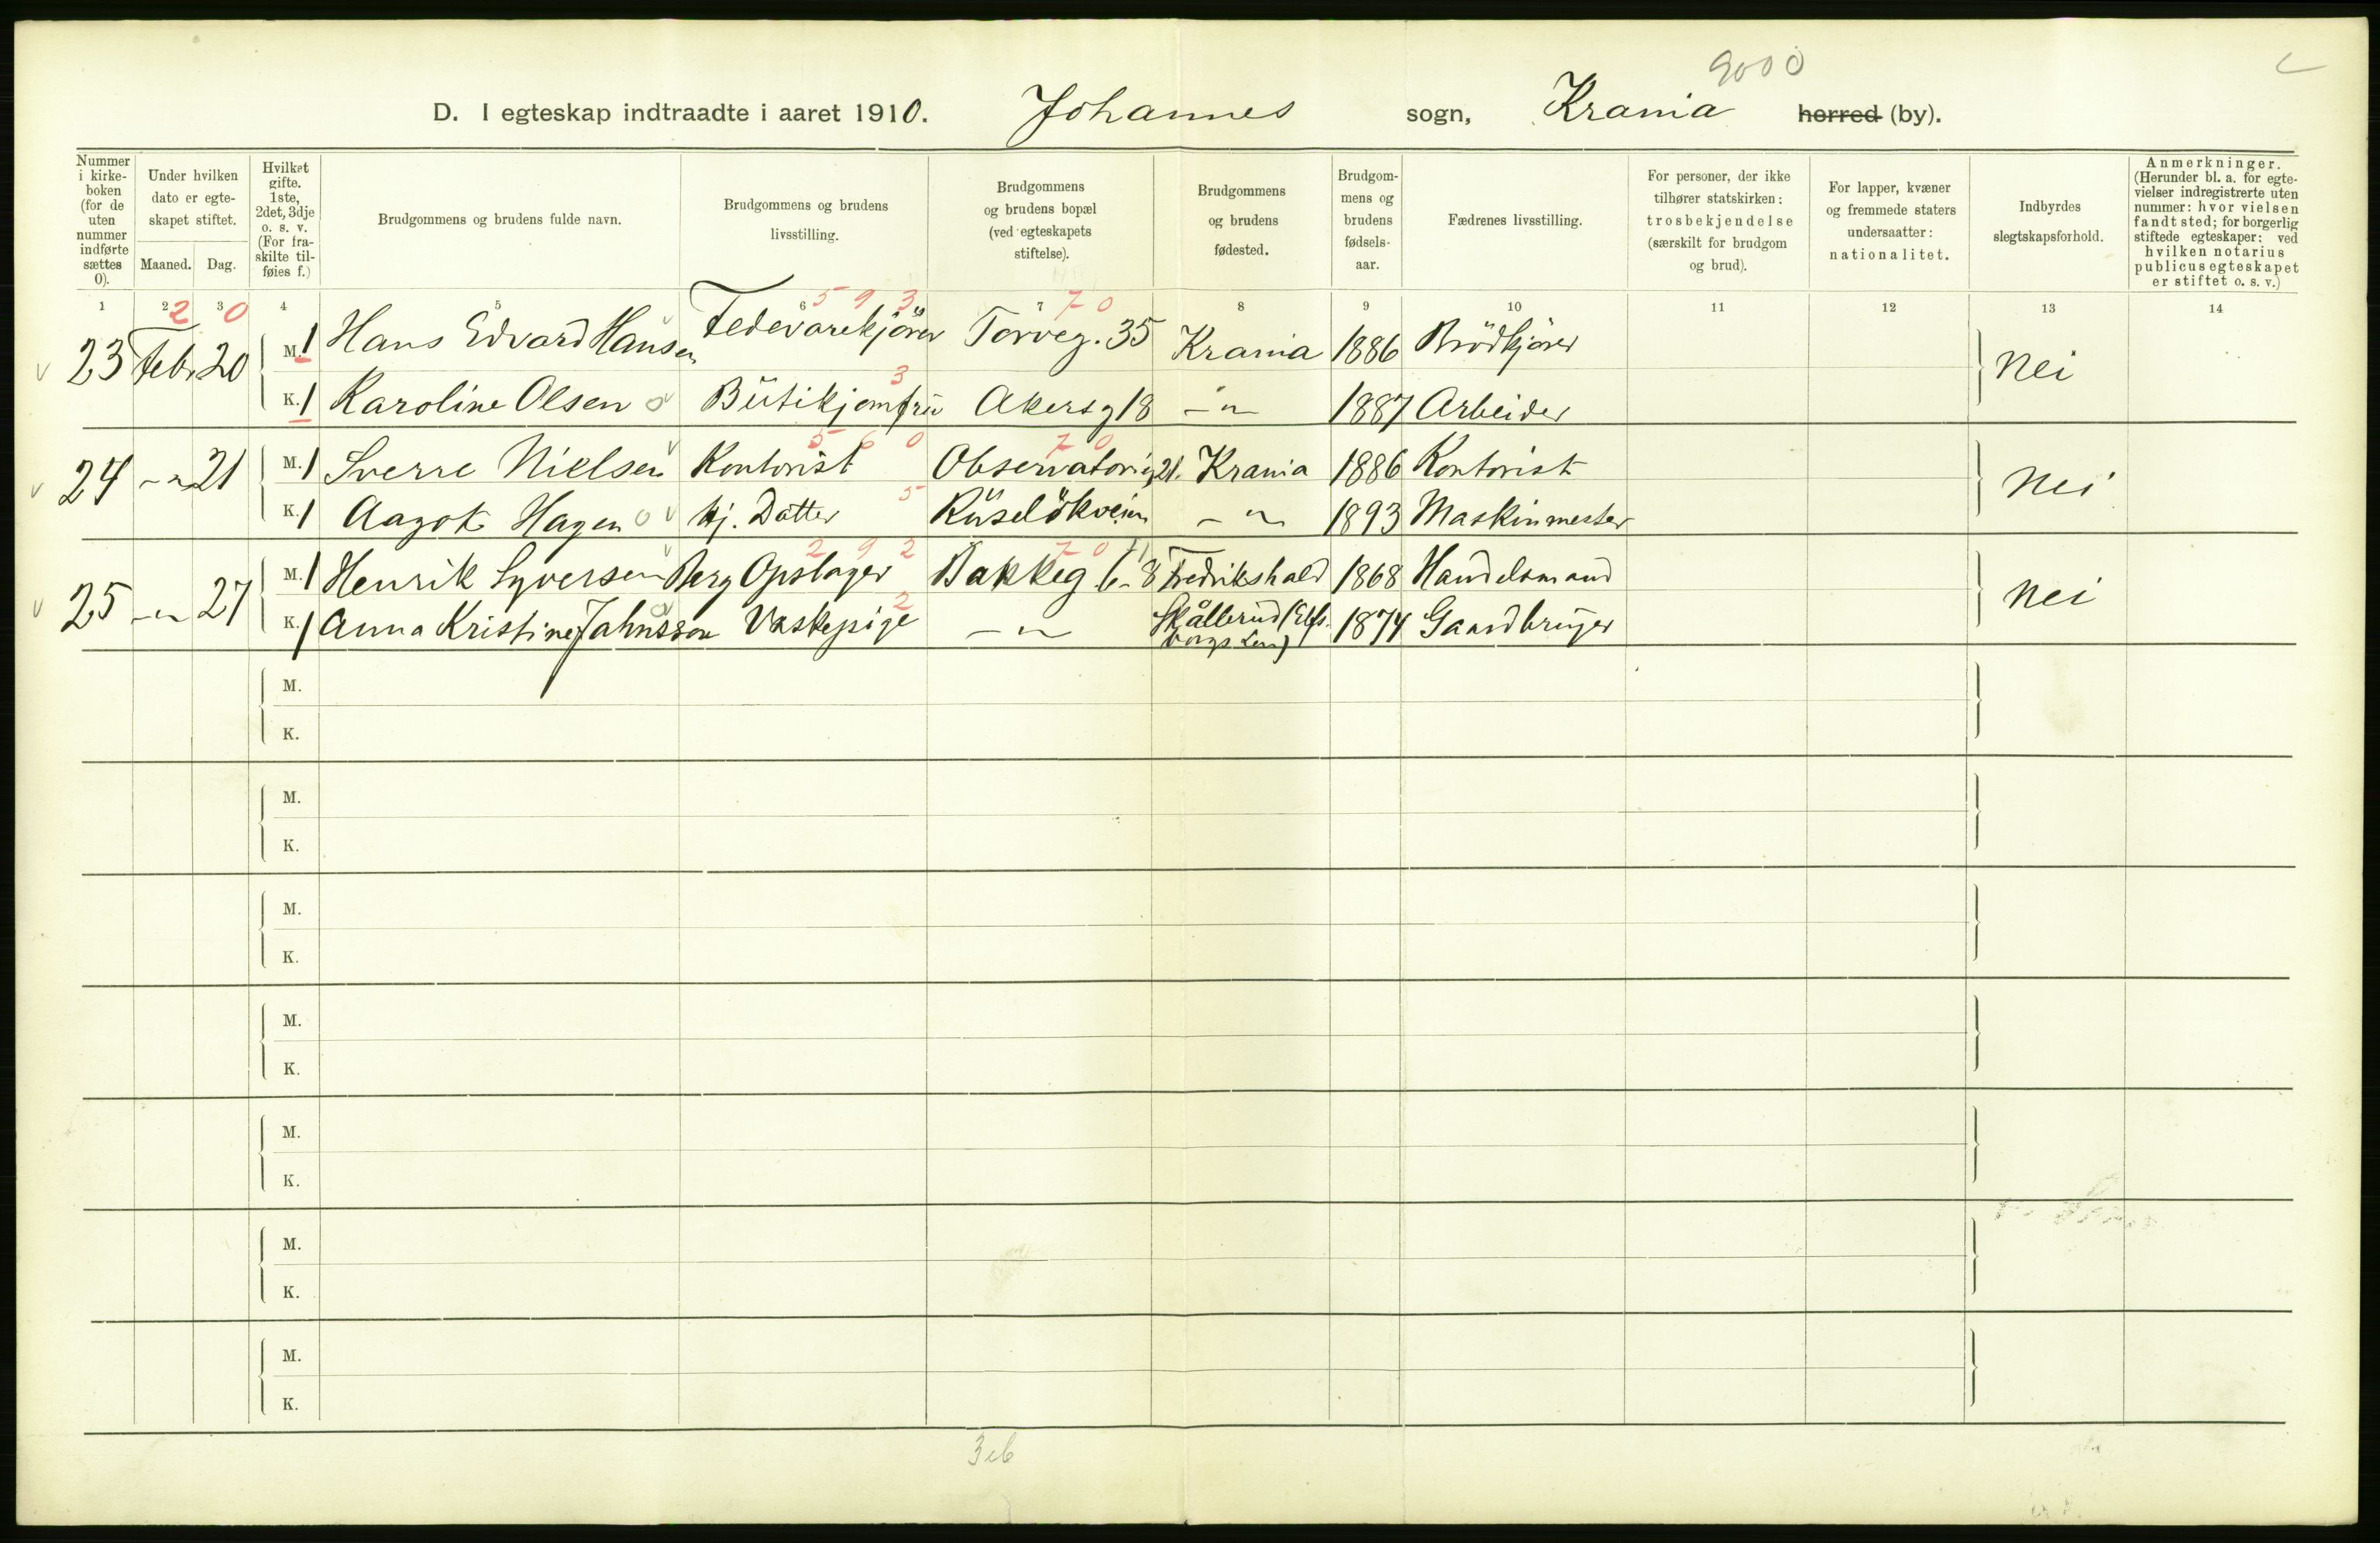 9000
D. I egteskap indtraadte i aaret 1910. Johannes sogn, Krania herred (by).
Nummer i kirke-boken (for de uten nummer indførte sættes 0).
Under hvilken dato er egte-skapet stiftet.
Maaned. Dag.
Hvilket gifte. 1ste, 2det, 3dje o. s. v. (For fra-skilte til-føies f.)
Brudgommens og brudens fulde navn.
Brudgommens og brudens livsstilling.
Brudgommens og brudens bopæl (ved egteskapets stiftelse).
Brudgommens og brudens fødested.
Brudgom-mens og brudens fødsels-aar.
Fædrenes livsstilling.
For personer, der ikke tilhører statskirken: trosbekjendelse (særskilt for brudgom og brud).
For lapper, kvæner og fremmede staters undersaatter: nationalitet.
Indbyrdes slegtskapsforhold.
Anmerkninger. (Herunder bl. a. for egte-vielser indregistrerte uten nummer: hvor vielsen fandt sted; for borgerlig stiftede egteskaper: ved hvilken notarius publicus egteskapet er stiftet o. s. v.)
1 2 3 4 5 6 7 8 9 10 11 12 13 14
2 0 5 9 3 7 0
23 Febr 20 M. 1 Hans Edvard Hansen Fedevarekjører Torveg. 35 Krania 1886 Brödkjører Nei
3
K. 1 Karoline Olsen Butikjomfru Akersg 18 -"- 1887 Arbeider
5 6 0 7 0
24 -"- 21 M. 1 Sverre Nielsen Kontorist Observatorieg 21. Krania 1886 Kontorist Nei
5
K. 1 Aagot Hagen Hj. Datter Ruselökveien -"- 1893 Maskinmester
2 9 2 7 0
25 -"- 27 M. 1 Henrik Syversen Berg Opslager Bakkeg 6-8 Fredrikshald 1868 Handelsmand Nei
2
K. 1 Anna Kristine Jahnsson Vaskepige -"- Skållerud (Elfs-borgs Len) 1874 Gaardbruger
M.
K.
M.
K.
M.
K.
M.
K.
M.
K.
M.
K.
M.
K.